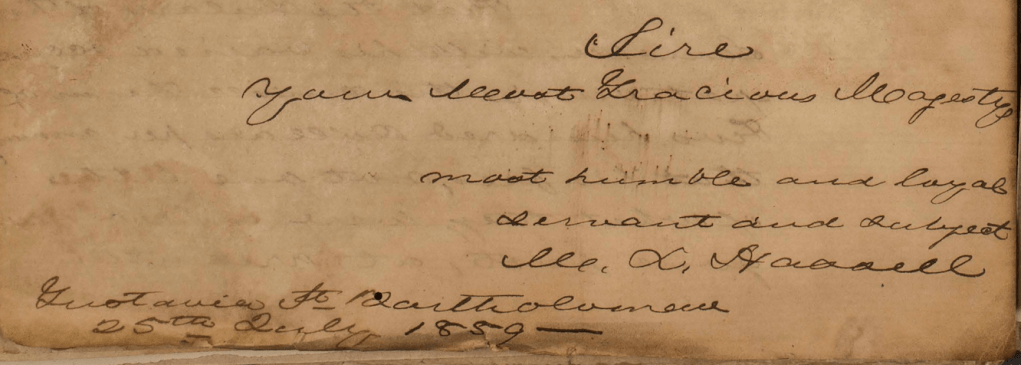 Sire
Your Most Gracious Magesty
most humble and loyal
servant and subject
M. L. Hassell
Gustavia St Bartholomew
25th July 1859 —